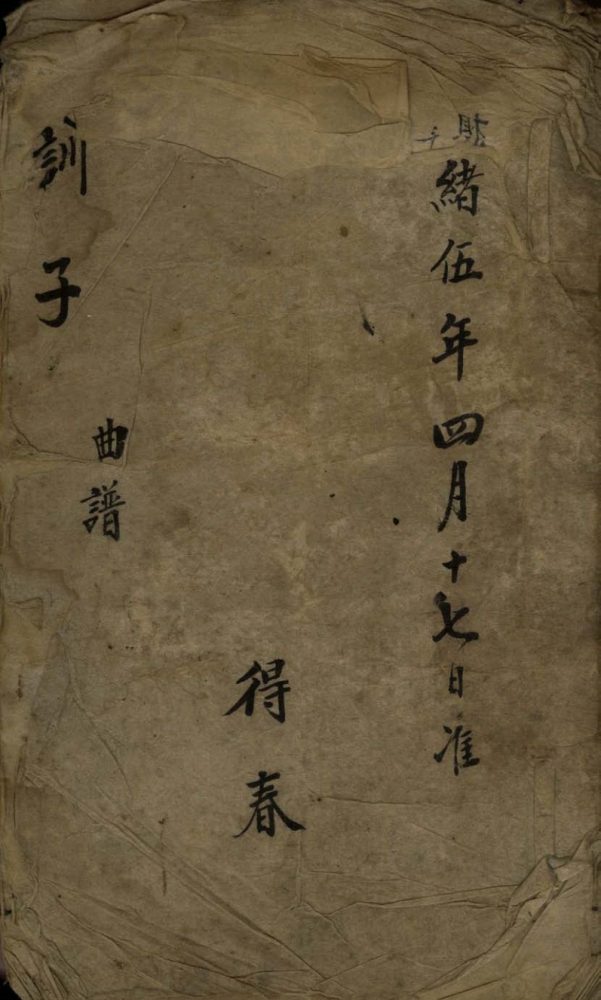 緒伍年四月十七日准
得春
訓子
曲譜